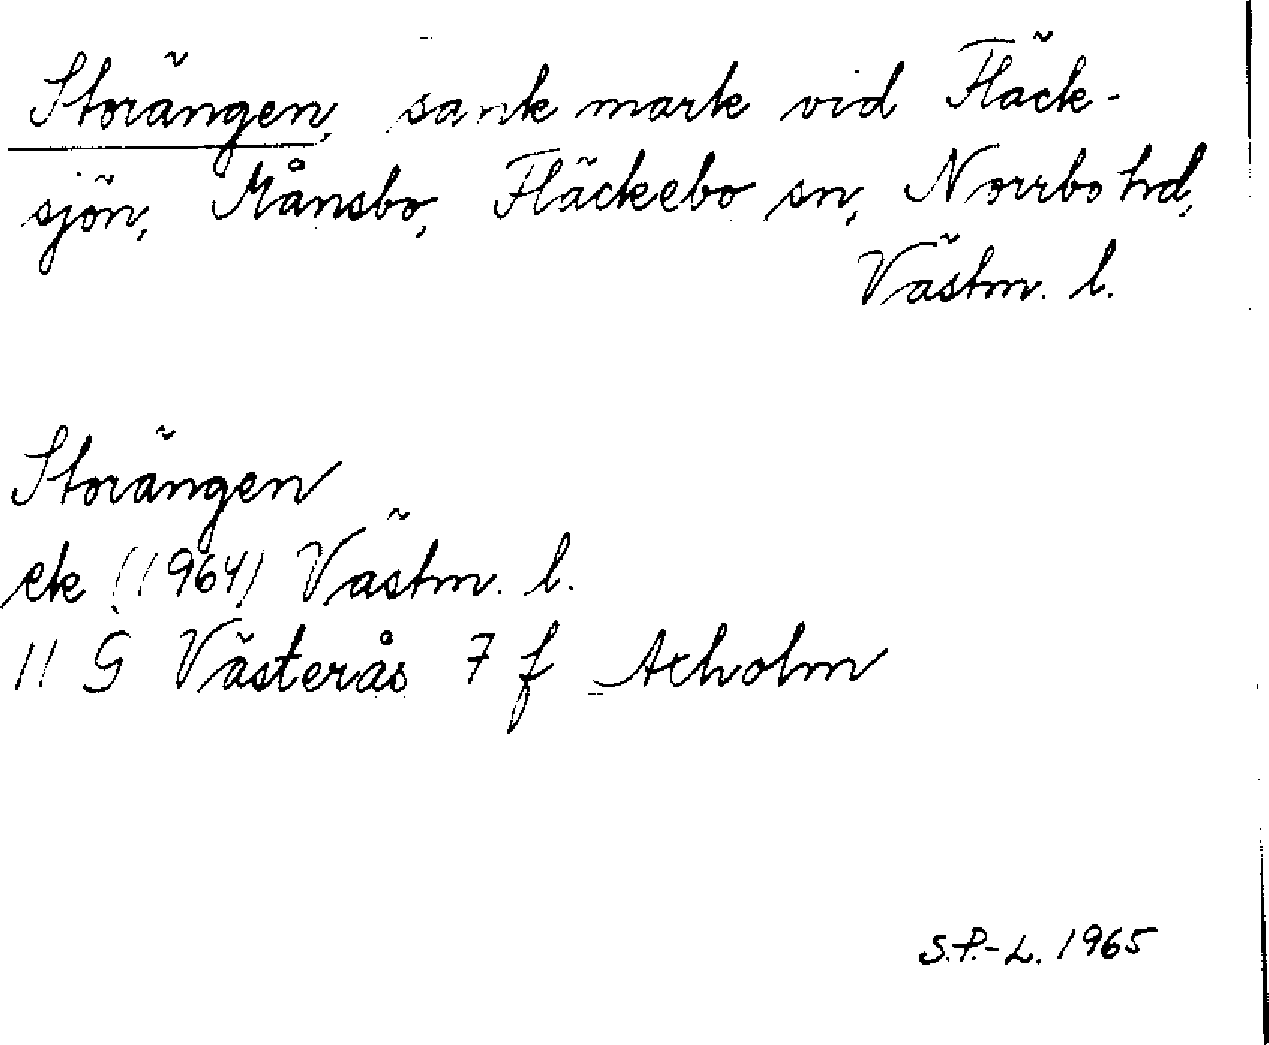 Storängen, sank mark vid Fläck-
sjön, Månsbo, Fläckebo sn, Norrbo hd,
Västm. l.
Storängen
ek (1964) Västm. l.
11 G Västerås 7 f Axholm
S.P.-L. 1965